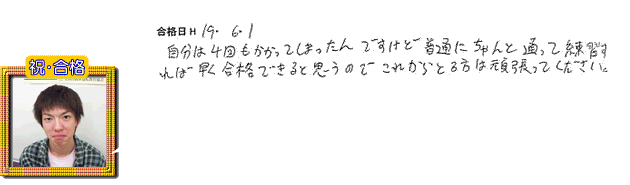 合格日H 19. 6. 1
自分は4回もかかってしまったんですけど普通にちゃんと通って練習す
れば早く合格できると思うのでこれからとる方は頑張ってください。
祝・合格